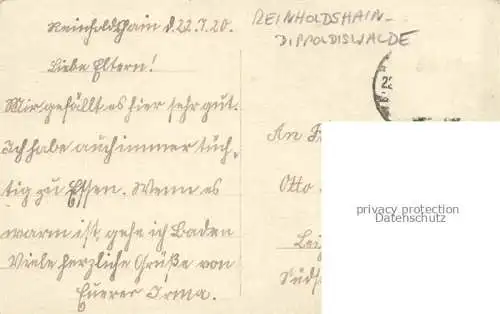 Reinholdshain d. 22.7.20.
REINHOLDSHAIN-
DIPPOLDISWALDE
Liebe Eltern!
Mir gefällt es hier sehr gut.
Ich habe auch immer tüch-
tig zu Essen. Wenn es
warm ist, gehe ich Baden
Viele herzliche Grüße von
Euerer Irma.
An
Otto
privacy protection
Datenschutz